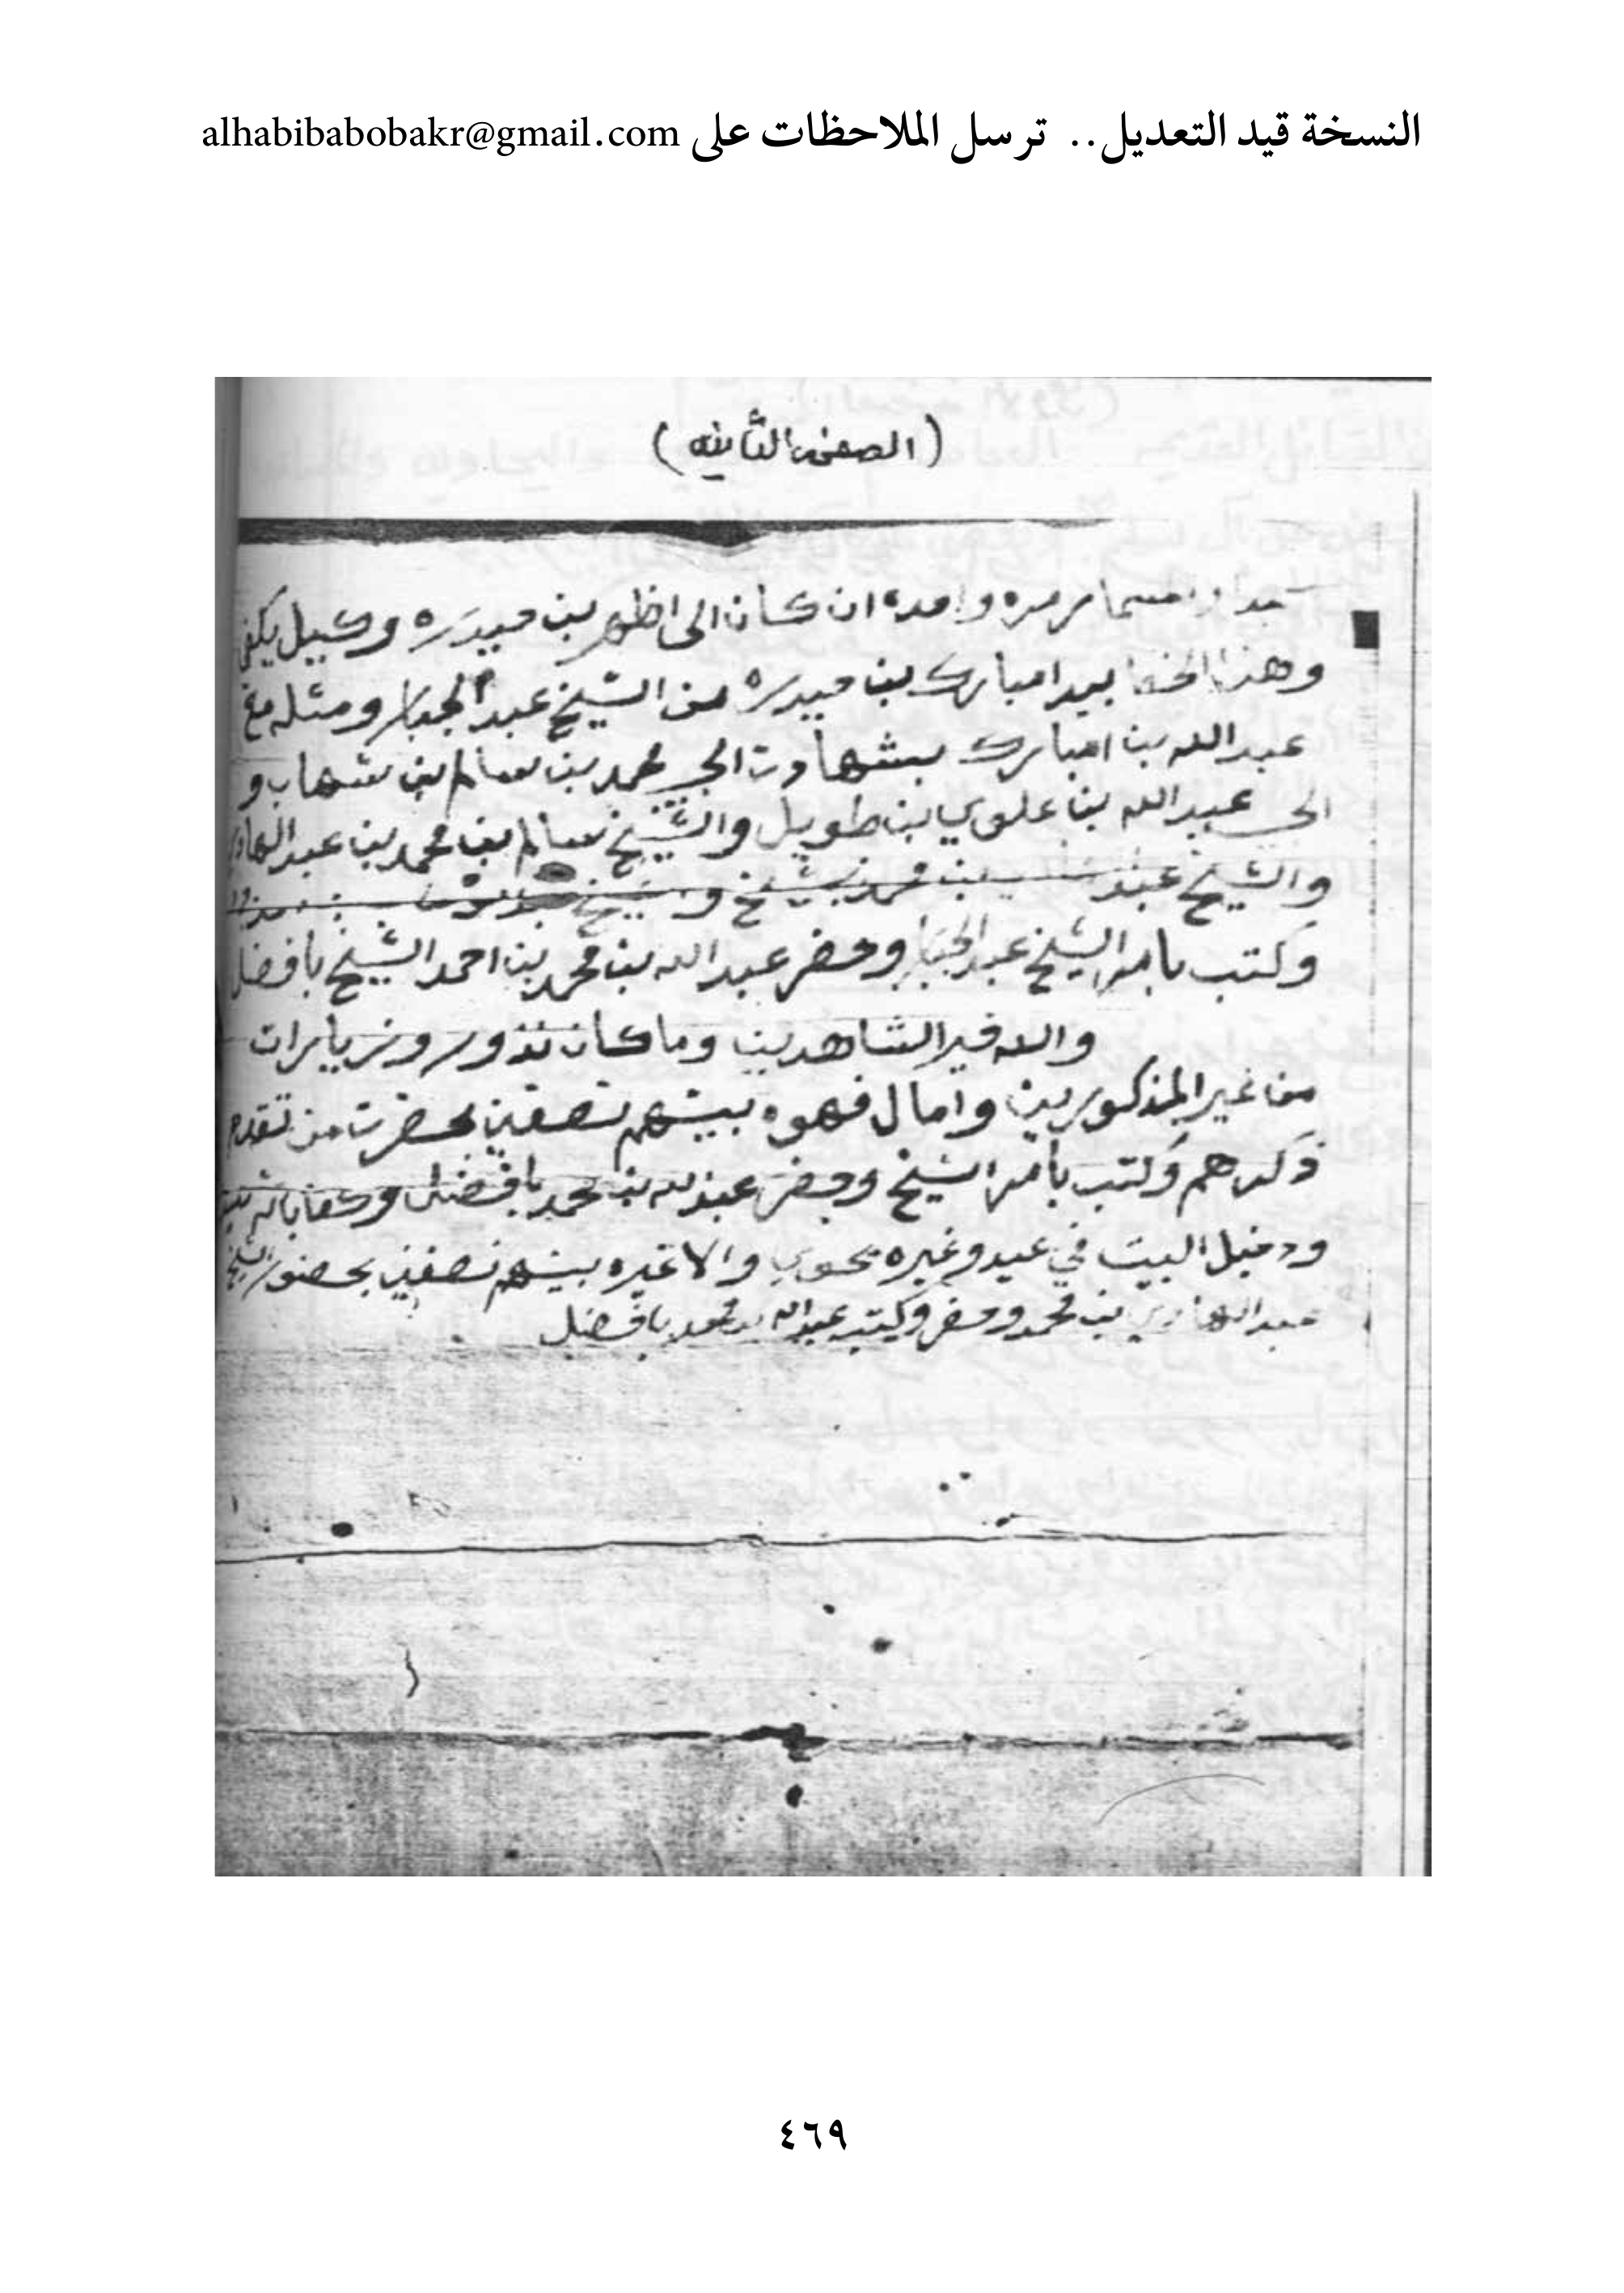 النسخة قيد التعديل.. ترسل الملاحظات على alhabibabobakr@gmail.com
(الصفحه الثانيه)
ان كان الى اظهر بن حيدره وكبيل يكفي
وهذا الخط بيد امبارك بن حيدره من الشيخ عبد الجبار ومثله مع
عبد الله بن امبارك بشهادت الحبي محمد بن سالم بن شهاب و
الحبي عبد الله بن علوي بن طويل والشيخ سالم بن محمد بن عبد الهادي
والشيخ
وكتب بامر الشيخ عبد الجبار وحضر عبد الله بن محمد بن احمد الشيخ بافضل
والله خير الشاهدين وما كان نذور وزيارات
من غير المذكورين وامال فهوه بينهم نصفين بحضرت من تقدم
ذكرهم وكتب بأمر الشيخ وحضر عبد الله بن محمد بافضل وكفا بالله
ودخيل البيت في عيد وغيره والا غيره بينهم نصفين بحضور الشيخ
عبد الهادي بن محمد وحضر وكتب عبد الله بن محمد بافضل
٤٦٩